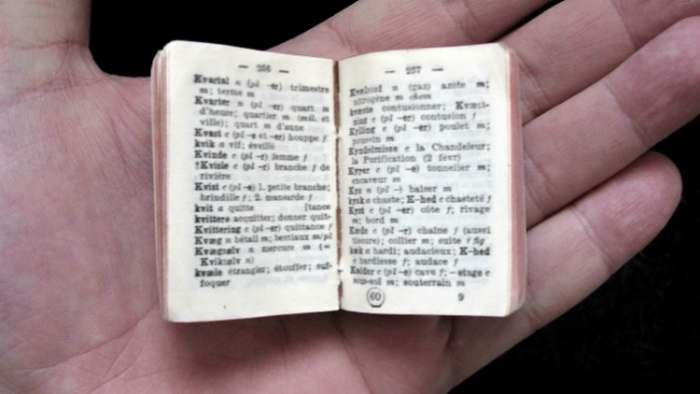 — 256 —
Kvartal n (pl -er) trimestre
m; terme m
Kvarter n (pl -er) quart m
d'heure; quartier m (mil. et
ville); quart m d'aune
Kvast c (pl -e et -er) houppe f
kvik a vif; éveillé
Kvinde c (pl -r) femme f
†Kvisle c (pl -r) branche f de
rivière
Kvist c (pl -e) 1. petite branche;
brindille f; 2. mansarde f
kvit a quitte [tance
kvittere acquitter; donner quit-
Kvittering c (pl -er) quittance f
Kvæg n bétail m; bestiaux m/pl
Kvægsølv n mercure m (=
Kviksølv n)
kvæle étrangler; étouffer; suf-
foquer
— 257 —
Kvælstof n (gaz) azote m;
nitrogène m chem
kvæste contusionner; Kvæst-
ning c (pl -er) contusion f
Kylling c (pl -er) poulet m;
poussin m
Kyndelmisse c la Chandeleur;
la Purification (2 févr)
Kyper c (pl -e) tonnelier m;
encaveur m
Kys n (pl -) baiser m
kysk a chaste; K-hed c chasteté f
Kyst c (pl -er) côte f; rivage
m; bord m
Kæde c (pl -r) chaîne f (aussi
tissure); collier m; suite f fig
kæk a hardi; audacieux; K-hed
c hardiesse f; audace f
Kælder c (pl -e) cave f; - etage c
sous-sol m; souterrain m
60 9